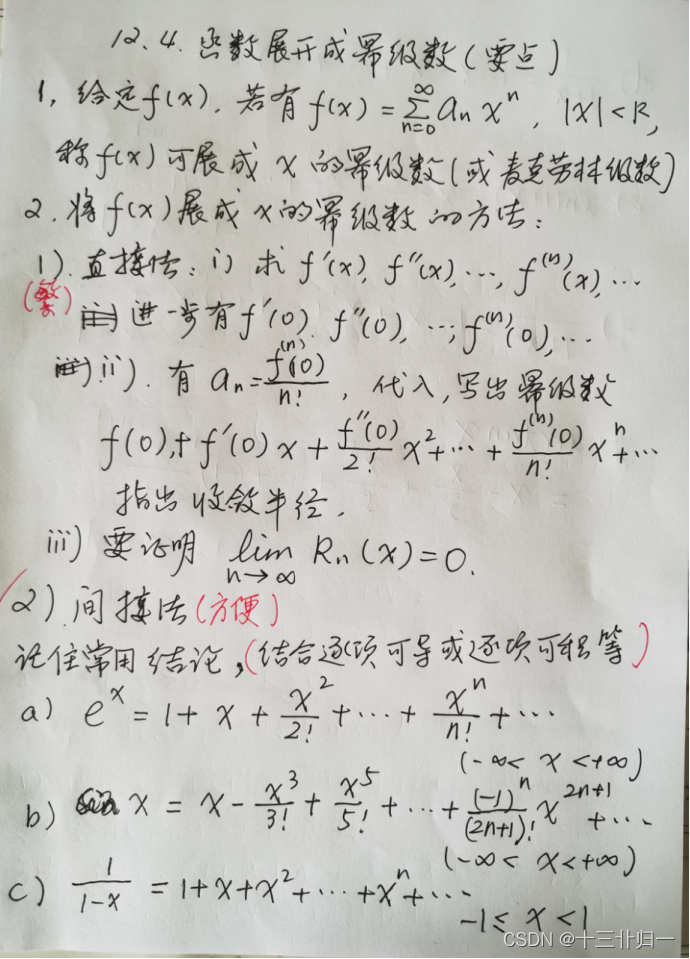 12.4. 函数展开成幂级数(要点)
1, 给定f(x), 若有 f(x) = ∑_{n=0}^{∞} aₙ xⁿ, |x| < R,
称f(x)可展成 x 的幂级数(或麦克劳林级数)
2. 将f(x)展成x的幂级数的方法:
1). 直接法: i) 求 f′(x), f″(x), …, f⁽ⁿ⁾(x), …
(繁) 进一步有f′(0), f″(0), …, f⁽ⁿ⁾(0), …
ii). 有 aₙ = f⁽ⁿ⁾(0)/n! , 代入, 写出幂级数
f(0) + f′(0) x + f″(0)/2! x² + … + f⁽ⁿ⁾(0)/n! xⁿ + …
指出收敛半径.
iii) 要证明 lim_{n→∞} Rₙ(x) = 0.
2). 间接法(方便)
记住常用结论, (结合逐项可导或逐项可积等)
a) eˣ = 1 + x + x²/2! + … + xⁿ/n! + …
(-∞ < x < +∞)
b) sin x = x - x³/3! + x⁵/5! + … + (-1)ⁿ/(2n+1)! x²ⁿ⁺¹ + …
(-∞ < x < +∞)
c) 1/(1-x) = 1 + x + x² + … + xⁿ + …
-1 ≤ x < 1
CSDN @十三卝归一